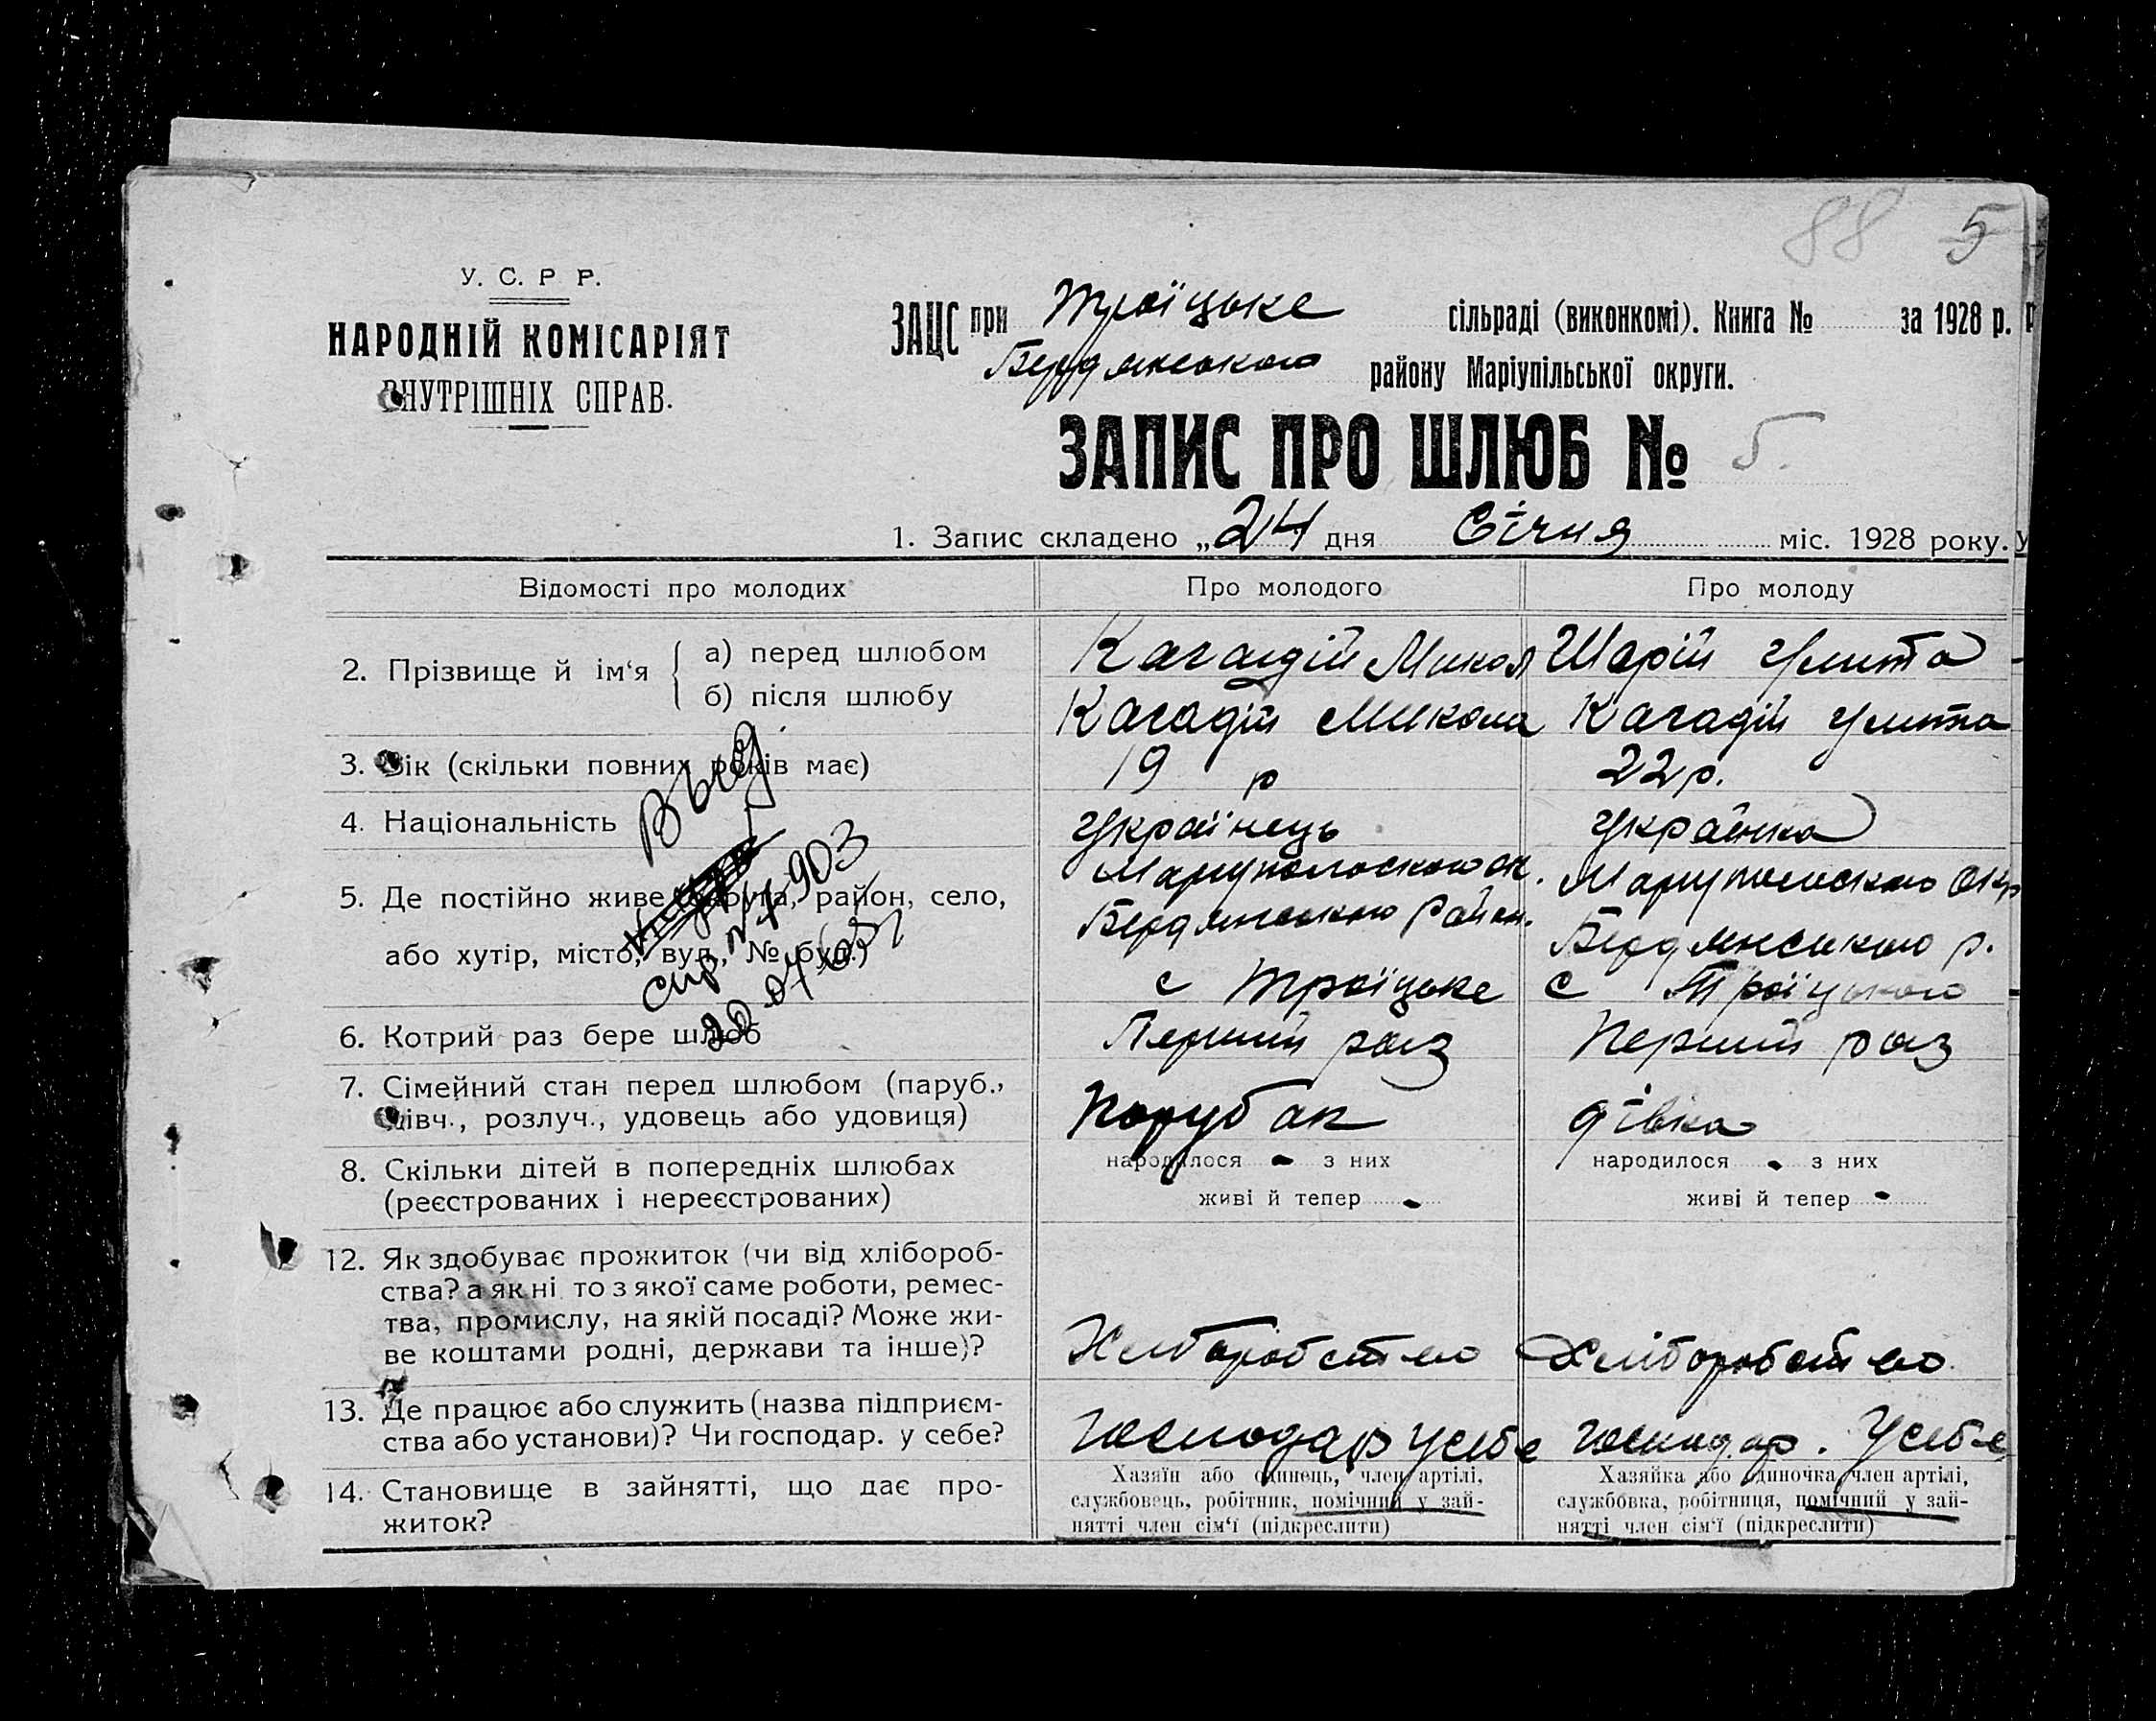 88 5
У. С. Р. Р.
НАРОДНІЙ КОМІСАРІЯТ
ВНУТРІШНІХ СПРАВ.
ЗАЦС при Троїцьке сільраді (виконкомі). Книга № за 1928 р.
Бердянського району Маріупільської округи.
ЗАПИС ПРО ШЛЮБ № 5.
1. Запис складено „24 дня Січня міс. 1928 року.
Відомості про молодих Про молодого Про молоду
2. Прізвище й ім'я { а) перед шлюбом Кагадій Микол Шарій Улита
б) після шлюбу Кагадій Микола Кагадій Улита
3. Вік (скільки повних років має) 19 р 22 р.
4. Національність Українець Українка
5. Де постійно живе (округа, район, село, або хутір, місто, вул., № буд.)
Маріупольского ок. Маріупольского окр
Бердянського район. Бердянського р.
с Троїцьке с Троїцького
Выд
спр №7-903
20-04-65
6. Котрий раз бере шлюб Перший раз Перший раз
7. Сімейний стан перед шлюбом (паруб.,
дівч., розлуч., удовець або удовиця) Порубак дівка
8. Скільки дітей в попередніх шлюбах народилося - з них народилося - з них
(реєстрованих і нереєстрованих) живі й тепер - живі й тепер -
12. Як здобуває прожиток (чи від хлібороб-
ства? а як ні то з якої саме роботи, ремес-
тва, промислу, на якій посаді? Може жи-
ве коштами родні, держави та інше)? Хліборобство Хліборобство
13. Де працює або служить (назва підприєм-
ства або установи)? Чи господар. у себе? Господар у себе Господар. У себе
14. Становище в зайнятті, що дає про-
житок?
Хазяїн або одинець, член артілі,
службовець, робітник, помічний у зай-
нятті член сім'ї (підкреслити)
Хазяйка або одиночка член артілі,
службовка, робітниця, помічний у зай-
нятті член сім'ї (підкреслити)